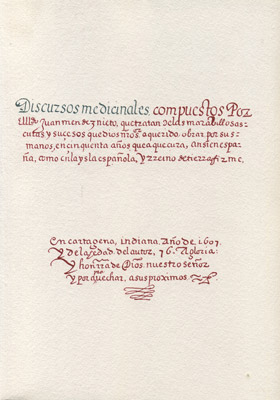 Discursos medicinales, compuestos Por
el lldo Juan mendez nieto, que tratan de las marabillosas
curas y sucesos que dios nro sor a querido obrar por sus
manos, en cinquenta años que a que cura, ansi en espa-
ña, como en la ysla española, y rreino de tierra firme.
En cartagena, indiana. Año de, 1607,
y de la edad del autor, 76. A gloria:
y honrra de Dios nuestro señor
y por aprouechar, a sus proximos.